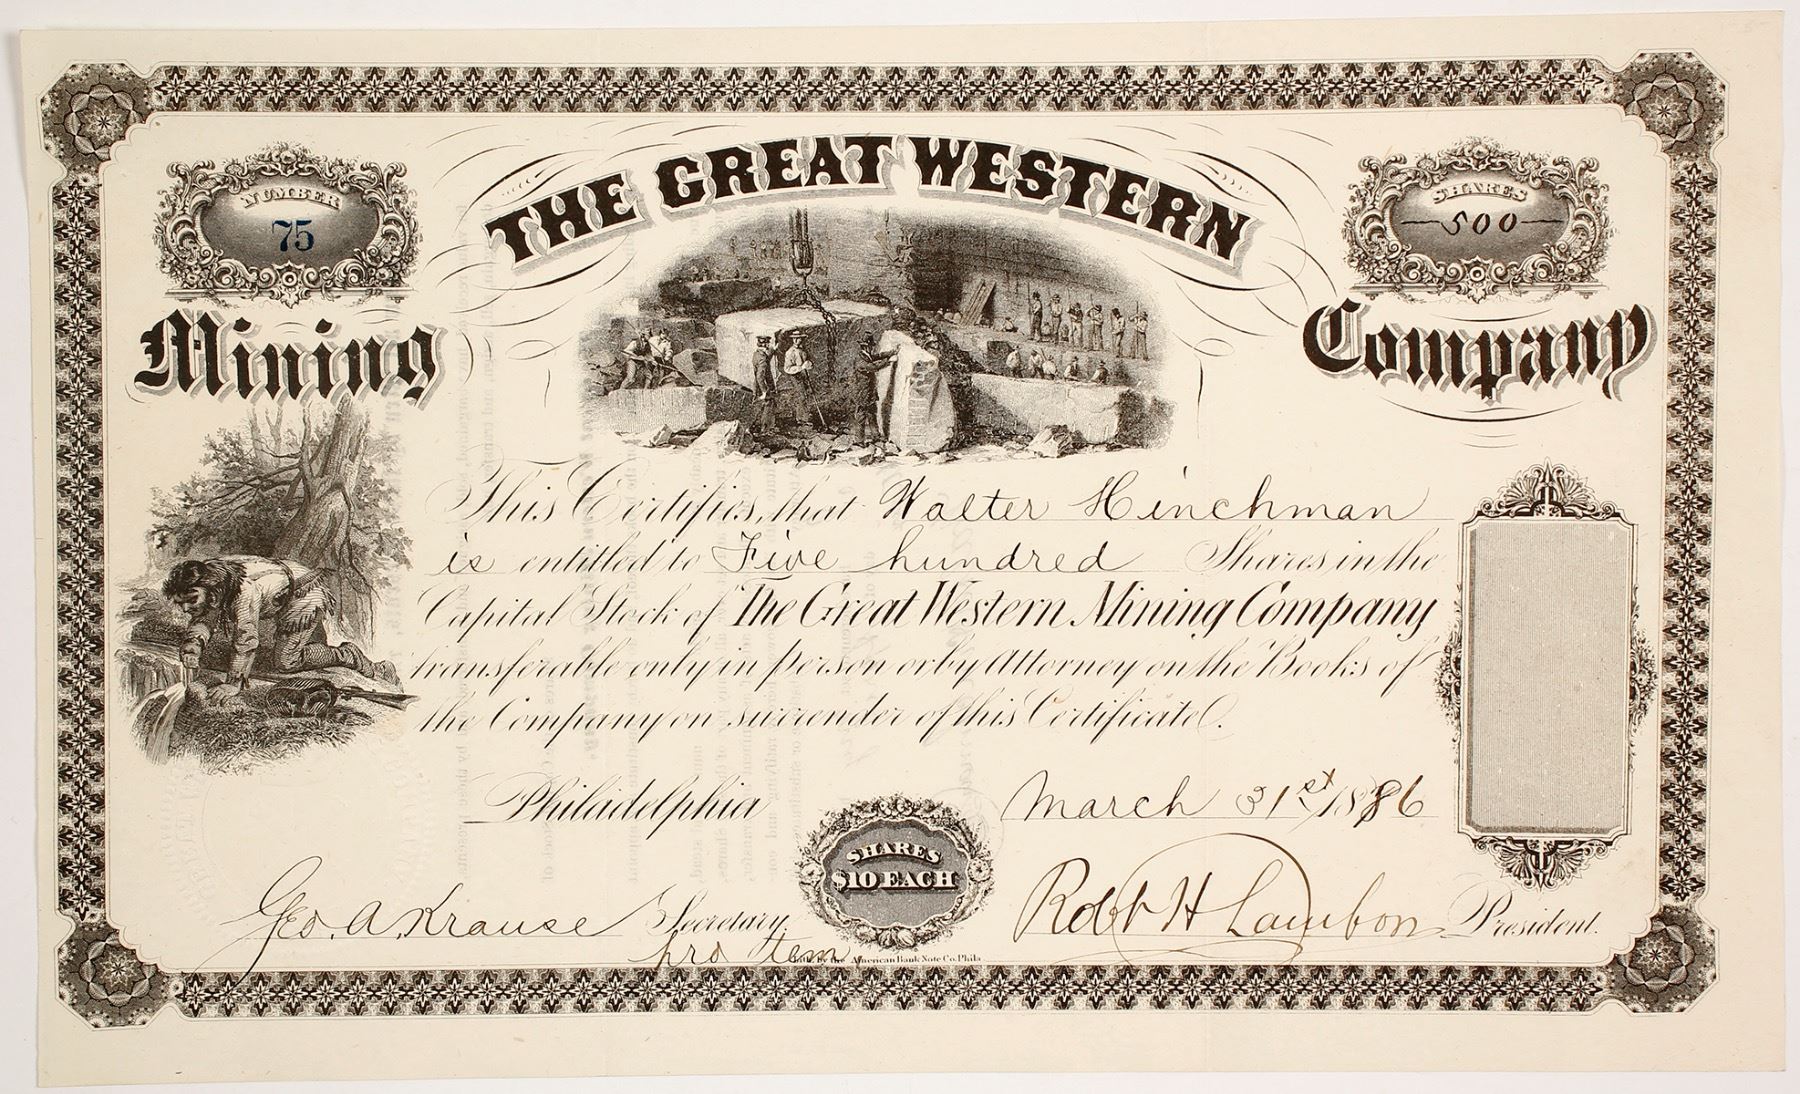 NUMBER
75
THE GREAT WESTERN
SHARES
500
Mining Company
This Certifies, that Walter Hinchman
is entitled to Five hundred Shares in the
Capital Stock of The Great Western Mining Company
transferable only in person or by Attorney on the Books of
the Company on surrender of this Certificate.
Philadelphia March 31st 1886
SHARES
$10 EACH
Geo. A. Krause Secretary. Robt H Lamborn President.
pro tem
by the American Bank Note Co. Phila.